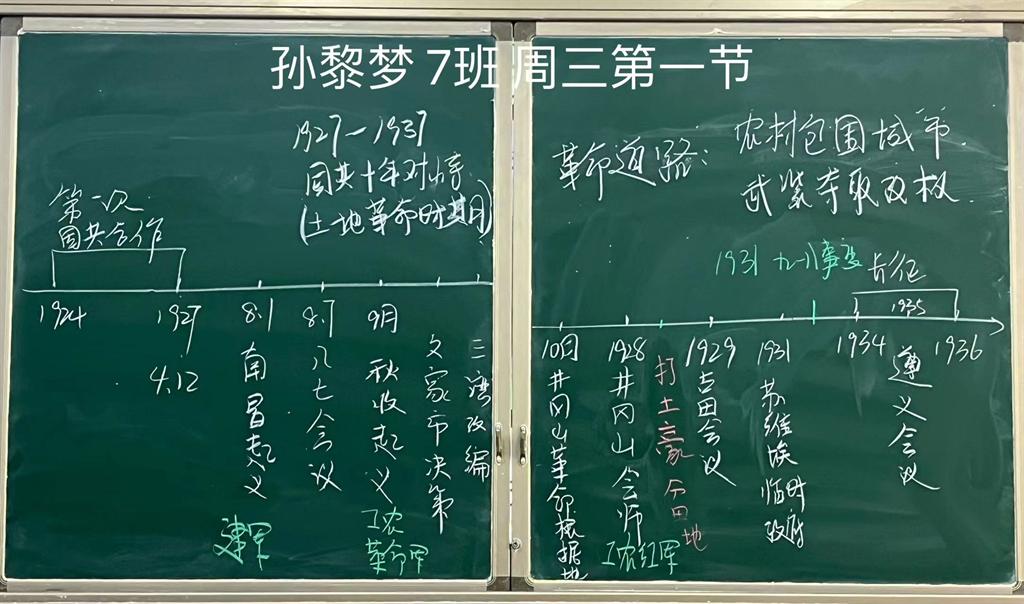 孙黎梦 7班 周三第一节
1927-1937
国共十年对峙
(土地革命时期)
第一次
国共合作
1924
1927
4.12
8.1
南昌起义
建军
8.7
八七会议
9月
秋收起义
工农
革命军
文家市决策
三湾改编
革命道路:
农村包围城市
武装夺取政权
1931 九一八事变
长征
1935
10月
井冈山革命根据地
1928
井冈山会师
工农红军
打土豪分田地
1929
古田会议
1931
苏维埃
临时
政府
1934
遵义会议
1936